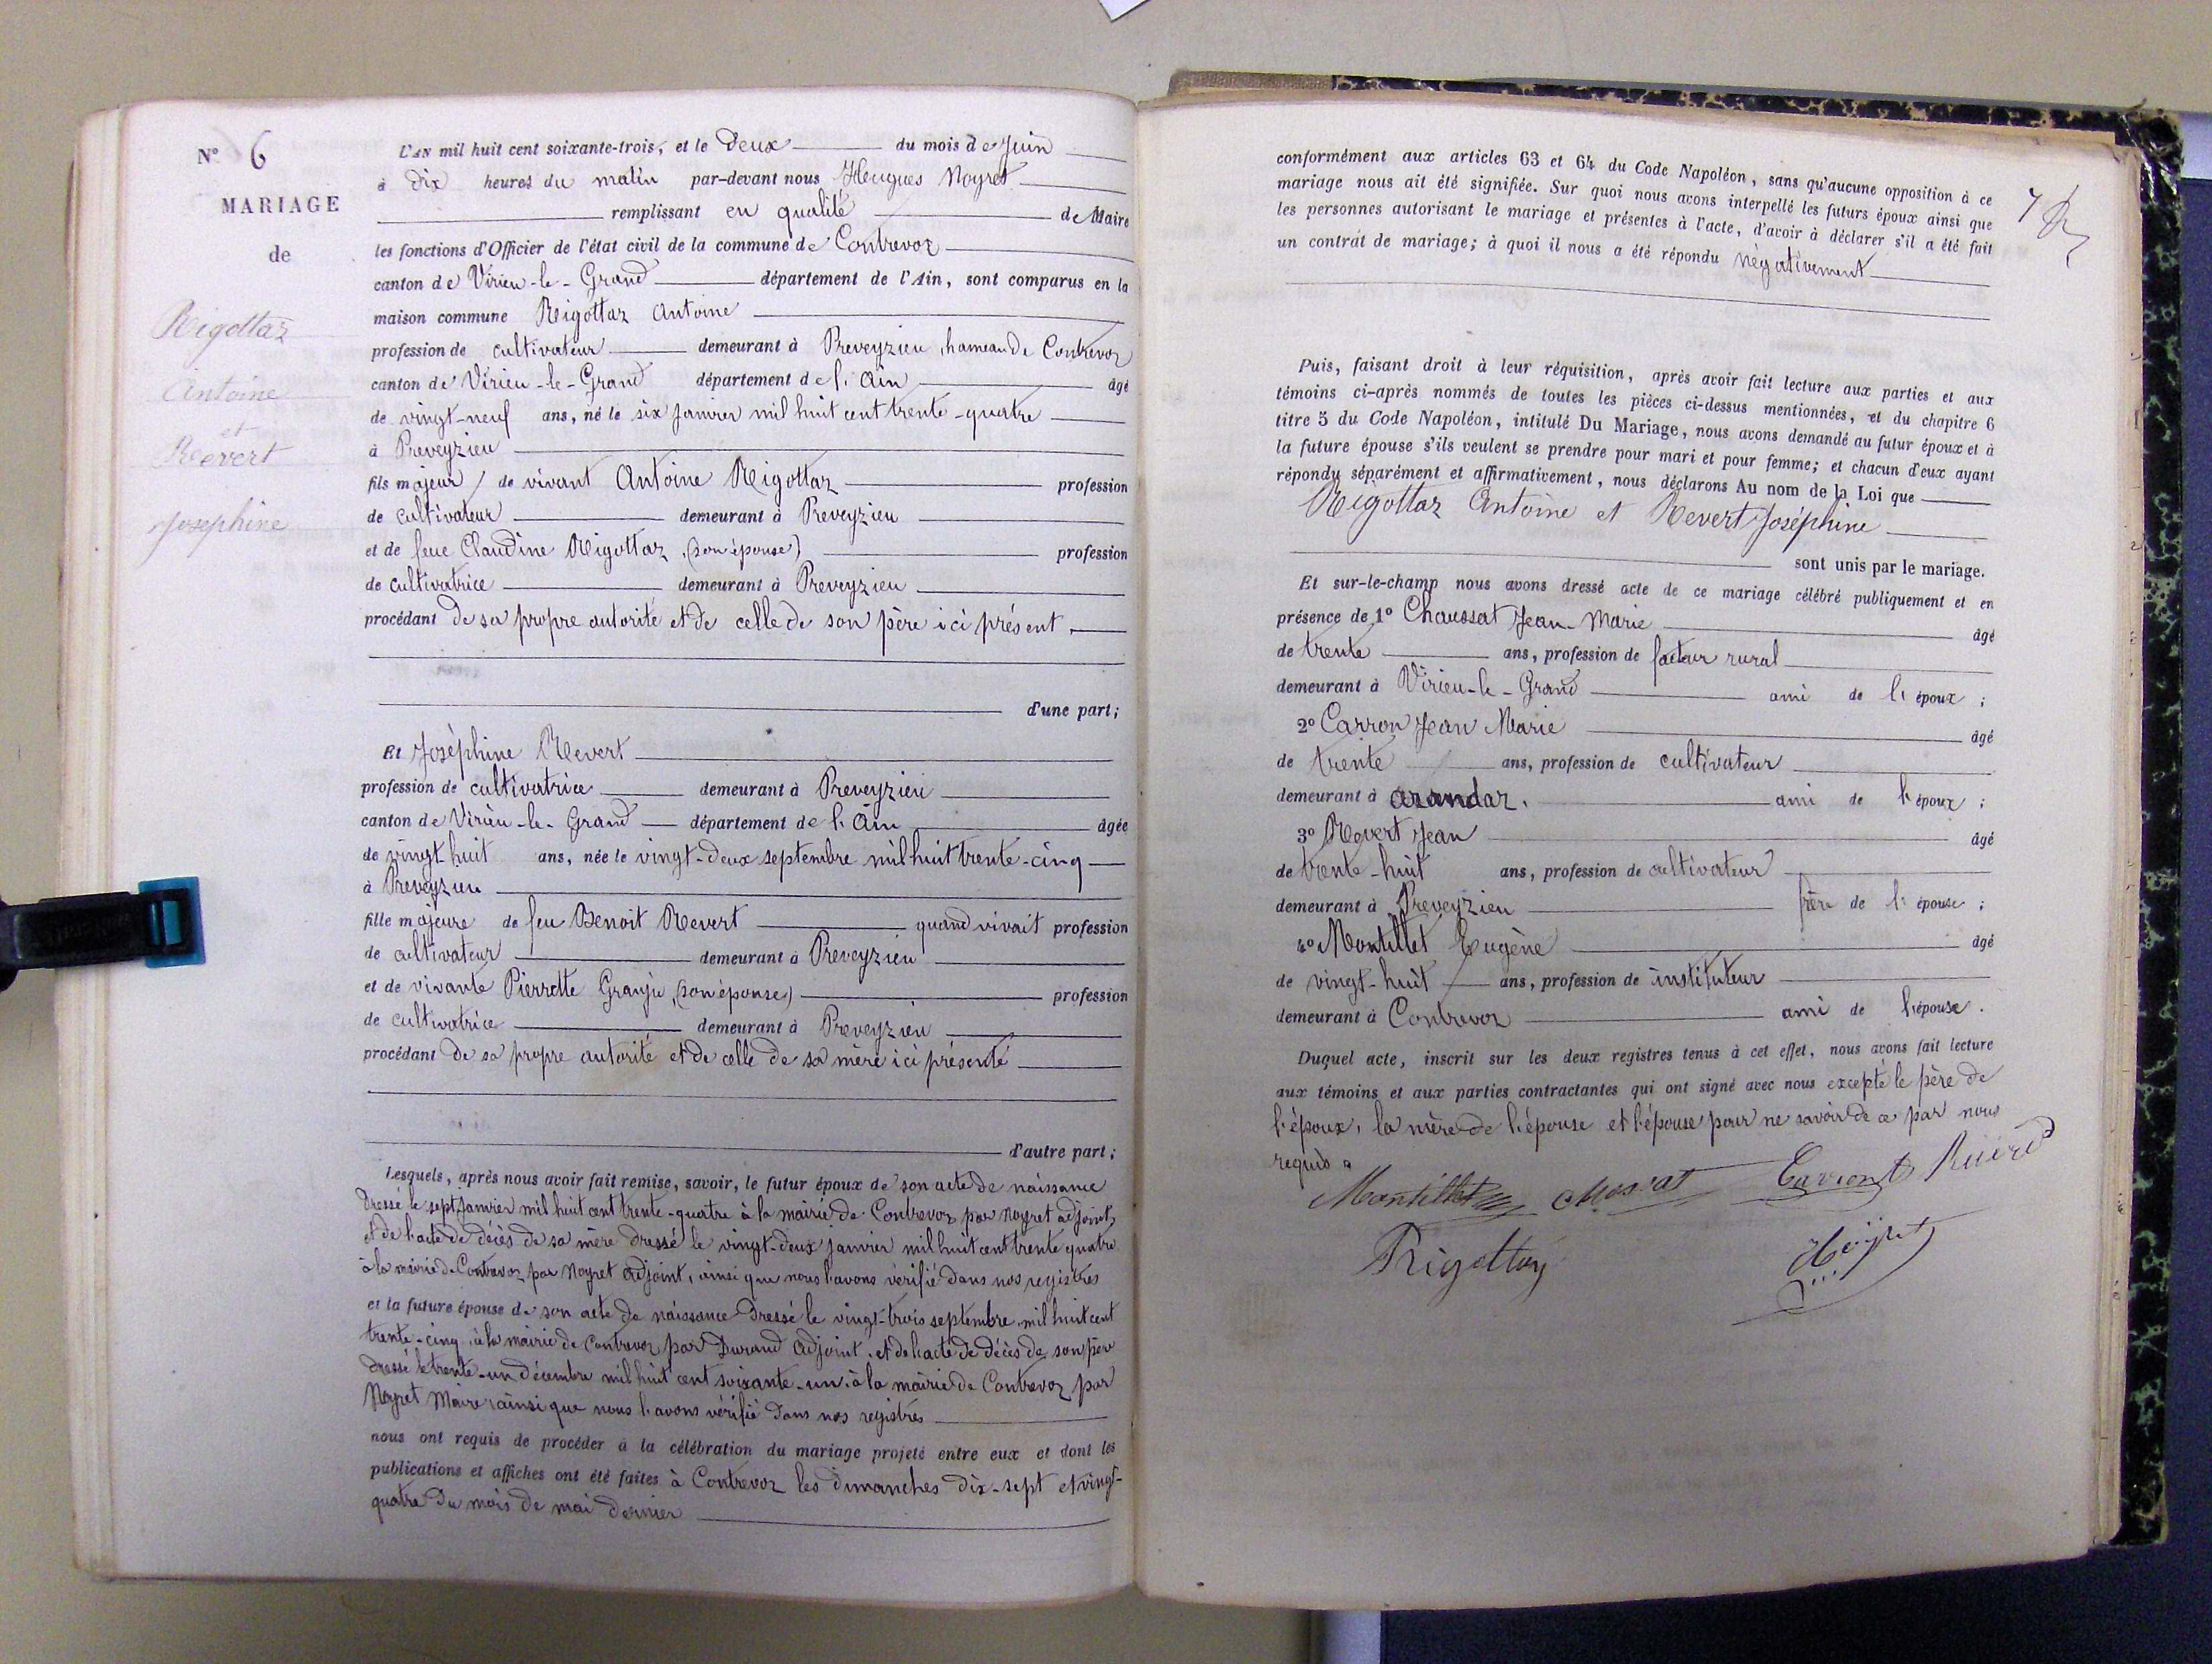 N° 6
MARIAGE
de
Rigottaz
Antoine
et
Revert
Joséphine
L'AN mil huit cent soixante-trois, et le Deux du mois de Juin
à Dix heures du matin par-devant nous Hugues Noyret
remplissant en qualité de Maire
les fonctions d'Officier de l'état civil de la commune de Contrevoz
canton de Virieu-le-Grand département de l'Ain, sont comparus en la
maison commune Rigottaz Antoine
profession de cultivateur demeurant à Preveyzieu, hameau de Contrevoz
canton de Virieu-le-Grand département de l'Ain âgé
de vingt-neuf ans, né le six Janvier mil huit cent trente-quatre
à Preveyzieu
fils majeur de vivant Antoine Rigottaz profession
de cultivateur demeurant à Preveyzieu
et de feue Claudine Rigottaz, (son épouse) profession
de cultivatrice demeurant à Preveyzieu
procédant de sa propre autorité et de celle de son père ici présent.
d'une part;
Et Joséphine Revert
profession de cultivatrice demeurant à Preveyzieu
canton de Virieu-le-Grand département de l'Ain âgée
de vingt-huit ans, née le vingt-deux septembre mil huit trente-cinq
à Preveyzieu
fille majeure de feu Benoit Revert quand vivait profession
de cultivateur demeurant à Preveyzieu
et de vivante Pierrette Granju, (son épouse) profession
de cultivatrice demeurant à Preveyzieu
procédant de sa propre autorité et de celle de sa mère ici présente
d'autre part;
Lesquels, après nous avoir fait remise, savoir, le futur époux de son acte de naissance
Dressé le sept Janvier mil huit cent trente-quatre à la mairie de Contrevoz par Noyret adjoint,
et de l'acte de décès de sa mère dressé le vingt-deux janvier mil huit cent trente quatre
à la mairie de Contrevoz par Noyret adjoint, ainsi que nous l'avons vérifié dans nos registres
et la future épouse de son acte de naissance dressé le vingt-trois septembre mil huit cent
trente-cinq, à la mairie de Contrevoz par Durand adjoint, et de l'acte de décès de son père
dressé le trente-un décembre mil huit cent soixante-un, à la mairie de Contrevoz par
Noyret Maire, ainsi que nous l'avons vérifié dans nos registres
nous ont requis de procéder à la célébration du mariage projeté entre eux et dont les
publications et affiches ont été faites à Contrevoz les dimanches dix-sept et vingt-
quatre du mois de mai dernier
7
conformément aux articles 63 et 64 du Code Napoléon, sans qu'aucune opposition à ce
mariage nous ait été signifiée. Sur quoi nous avons interpellé les futurs époux ainsi que
les personnes autorisant le mariage et présentes à l'acte, d'avoir à déclarer s'il a été fait
un contrat de mariage; à quoi il nous a été répondu négativement
Puis, faisant droit à leur réquisition, après avoir fait lecture aux parties et aux
témoins ci-après nommés de toutes les pièces ci-dessus mentionnées, et du chapitre 6
titre 5 du Code Napoléon, intitulé Du Mariage, nous avons demandé au futur époux et à
la future épouse s'ils veulent se prendre pour mari et pour femme; et chacun d'eux ayant
répondu séparément et affirmativement, nous déclarons Au nom de la Loi que
Rigottaz Antoine et Revert Joséphine
sont unis par le mariage.
Et sur-le-champ nous avons dressé acte de ce mariage célébré publiquement et en
présence de 1° Chaussat Jean-Marie âgé
de trente ans, profession de facteur rural
demeurant à Virieu-le-Grand ami de l'époux;
2° Carron Jean Marie âgé
de trente ans, profession de cultivateur
demeurant à arandaz. ami de l'époux;
3° Revert Jean âgé
de trente-huit ans, profession de cultivateur
demeurant à Preveyzieu frère de l'épouse;
4° Montillet Eugène âgé
de vingt-huit ans, profession de instituteur
demeurant à Contrevoz ami de l'épouse.
Duquel acte, inscrit sur les deux registres tenus à cet effet, nous avons fait lecture
aux témoins et aux parties contractantes qui ont signé avec nous excepté le père de
l'époux, la mère de l'épouse et l'épouse pour ne savoir de ce par nous
requis.
Montillet
Rigottaz